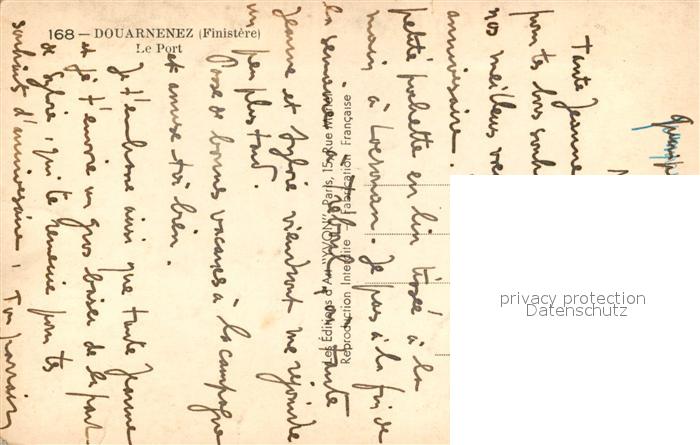 168 — DOUARNENEZ (Finistère)
Le Port
Quimp
Tante Jeanne
pour tes bons souh
nos meilleurs vœ
anniversaire.
petite pochette en lin tissé à la
main à Locronan. Je pars à la fin de
la semaine Tante
Jeanne et Sylvie viendront me rejoindre
un peu plus tard.
Passe de bonnes vacances à la campagne
et amuse toi bien.
Je t'embrasse ainsi que tante Jeanne
et je t'envoie un gros baiser de la part
de Sylvie, qui te remercie pour tes
souhaits d'anniversaire. Ton parrain
Les Éditions d'Art "YVON" - Paris, 15, Rue Martel
Reproduction Interdite — Fabrication Française
privacy protection
Datenschutz